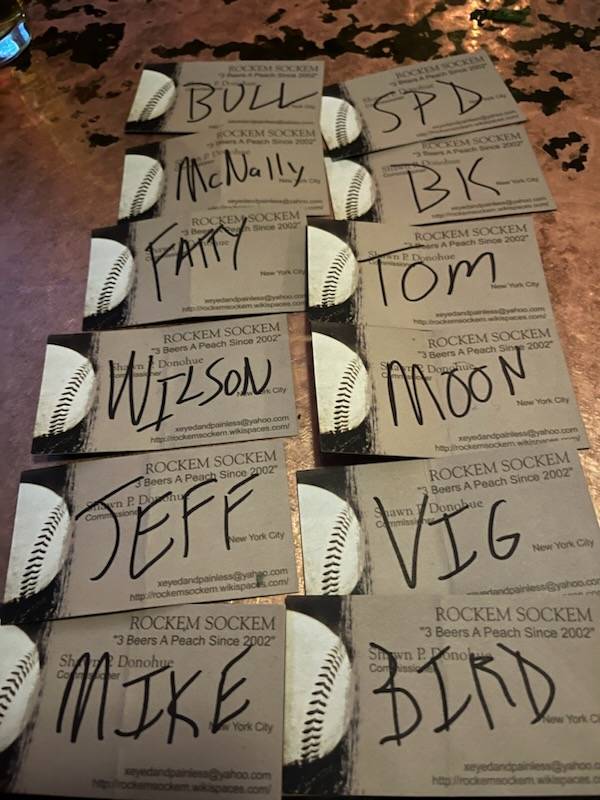 ROCKEM SOCKEM
"3 Beers A Peach Since 2002"
BULL
ROCKEM SOCKEM
"3 Beers A Peach Since 2002"
SPD
ROCKEM SOCKEM
Beers A Peach Since 2002"
McNally
New York City
xeyedandpainless@yahoo.com
ROCKEM SOCKEM
"3 Beers A Peach Since 2002"
Shawn P. Donohue
BK
New York City
xeyedandpainless@yahoo.com
http://rockemsockem.wikispaces.com/
ROCKEM SOCKEM
"3 Beers A Peach Since 2002"
FATTY
New York City
xeyedandpainless@yahoo.com
http://rockemsockem.wikispaces.com/
ROCKEM SOCKEM
"3 Beers A Peach Since 2002"
Shawn P. Donohue
TOM
New York City
xeyedandpainless@yahoo.com
http://rockemsockem.wikispaces.com/
ROCKEM SOCKEM
"3 Beers A Peach Since 2002"
Shawn P. Donohue
Commissioner
WILSON
New York City
xeyedandpainless@yahoo.com
http://rockemsockem.wikispaces.com/
ROCKEM SOCKEM
"3 Beers A Peach Since 2002"
Shawn P. Donohue
Commissioner
MOON
New York City
xeyedandpainless@yahoo.com
http://rockemsockem.wikispaces.com/
ROCKEM SOCKEM
"3 Beers A Peach Since 2002"
Shawn P. Donohue
Commissioner
JEFF
New York City
xeyedandpainless@yahoo.com
http://rockemsockem.wikispaces.com/
ROCKEM SOCKEM
"3 Beers A Peach Since 2002"
Shawn P. Donohue
Commissioner
VIG
New York City
xeyedandpainless@yahoo.co
ROCKEM SOCKEM
"3 Beers A Peach Since 2002"
Shawn P. Donohue
Commissioner
MIKE
New York City
xeyedandpainless@yahoo.com
http://rockemsockem.wikispaces.com/
ROCKEM SOCKEM
"3 Beers A Peach Since 2002"
Shawn P. Donohue
Commissioner
BIRD
New York Ci
xeyedandpainless@yahoo.co
http://rockemsockem.wikispaces.com